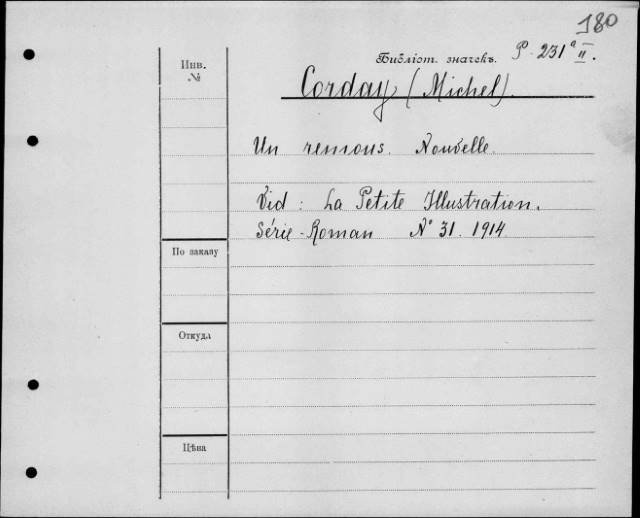 180
Библіот. значекъ. P-231ª II/II.
Инв.
№
Corday (Michel).
Un remous. Nouvelle.
Vid: La Petite Illustration.
Série-Roman N° 31. 1914
По заказу
Откуда
Цѣна